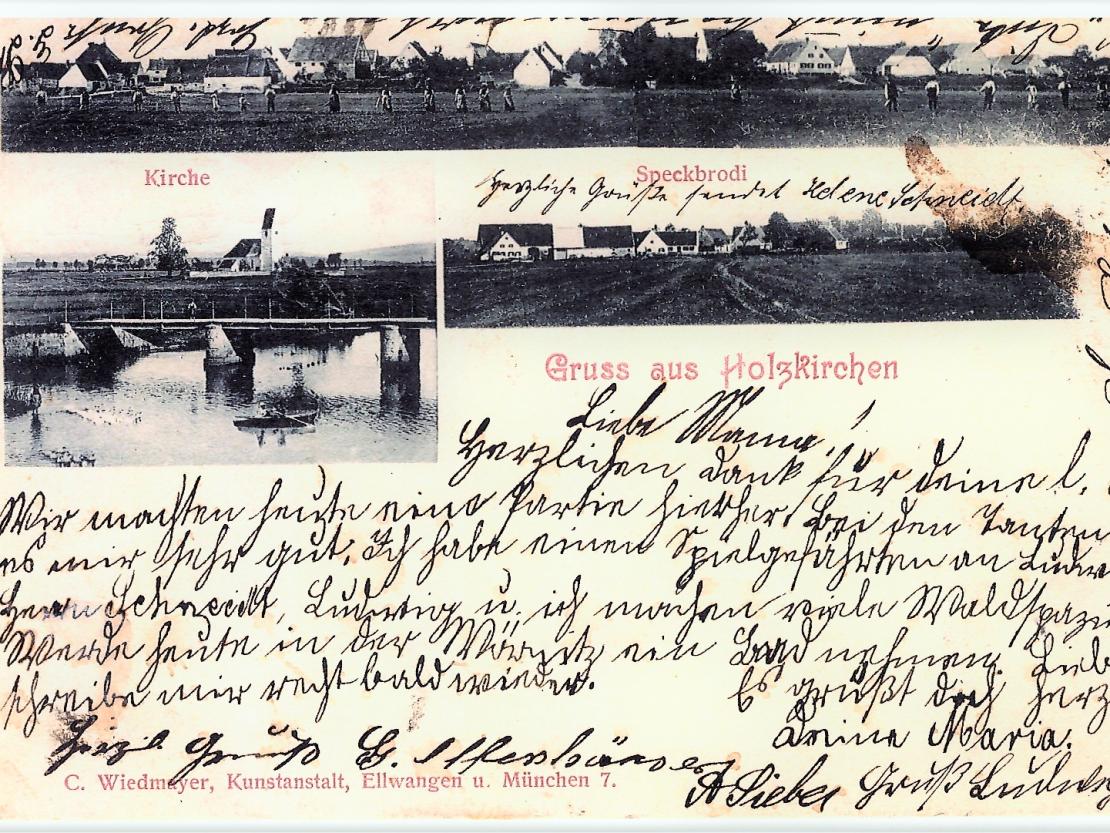 Kirche
Speckbrodi
Herzliche Grüße sendet Helene Schneidt.
Gruss aus Holzkirchen
Liebe Mama!
Herzlichen Dank für deine l.
Wir machten heute eine Partie hierher. Bei den Tanten
es mir sehr gut. Ich habe einen Spielgefährten an Ludw
Herrn Schneidt, Ludwig u. ich machen viele Waldspazi
Werde heute in der Wörnitz ein Bad nehmen. Lieb
schreibe mir recht bald wieder. Es grüßt dich herz
Deine Maria.
Herzl. Gruß
C. Wiedmayer, Kunstanstalt, Ellwangen u. München 7.
Gruß Ludwig